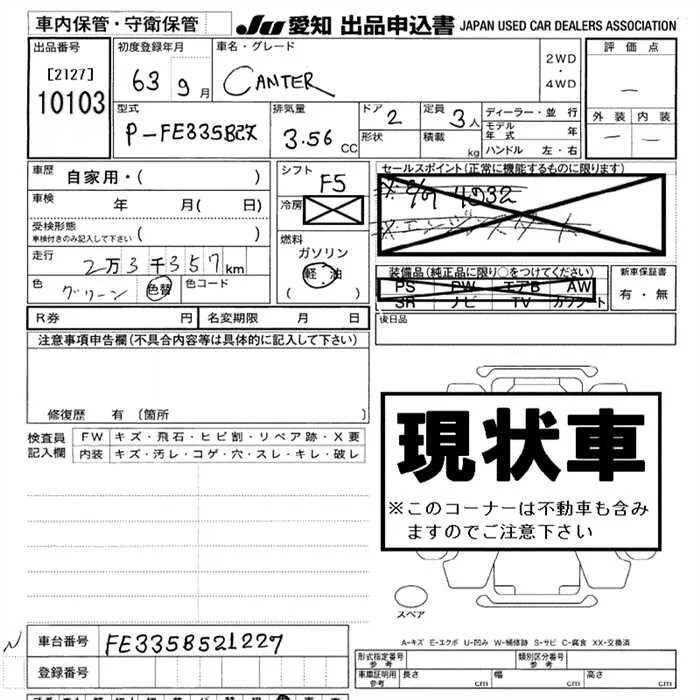 車内保管・守衛保管
JU 愛知 出品申込書 JAPAN USED CAR DEALERS ASSOCIATION
出品番号
[2127]
10103
初度登録年月
63 9月
車名・グレード
CANTER
2WD
・
4WD
評価点
—
外装 内装
— —
型式
P-FE335B改
排気量
3.56 CC
ドア 2
形状
定員 3人
積載 kg
ディーラー・並行
モデル年式 年
ハンドル 左・右
車歴 自家用・( )
車検 年 月( 日)
受検形態
車検付きのみ記入して下さい ( )
走行 2万3千357km
色 グリーン 色替 色コード
シフト F5
冷房
燃料
ガソリン
軽・油
( )
セールスポイント(正常に機能するものに限ります)
装備品(純正品に限り○をつけてください)
PS PW エアB AW
SR ナビ TV カワシート
新車保証書
有・無
R券 円 名変期限 月 日
後日品
注意事項申告欄(不具合内容等は具体的に記入して下さい)
修復歴 有 〔箇所 〕
検査員
記入欄
FW キズ・飛石・ヒビ割・リペア跡・X要
内装 キズ・汚レ・コゲ・穴・スレ・キレ・破レ
現状車
※このコーナーは不動車も含み
ますのでご注意下さい
スペア
A-キズ E-エクボ U-凹み W-補修跡 S-サビ C-腐食 XX-交換済
車台番号 FE335B521227
登録番号
形式指定番号
参考
類別区分番号
参考
車庫証明用
参考
長さ cm 幅 cm 高さ cm